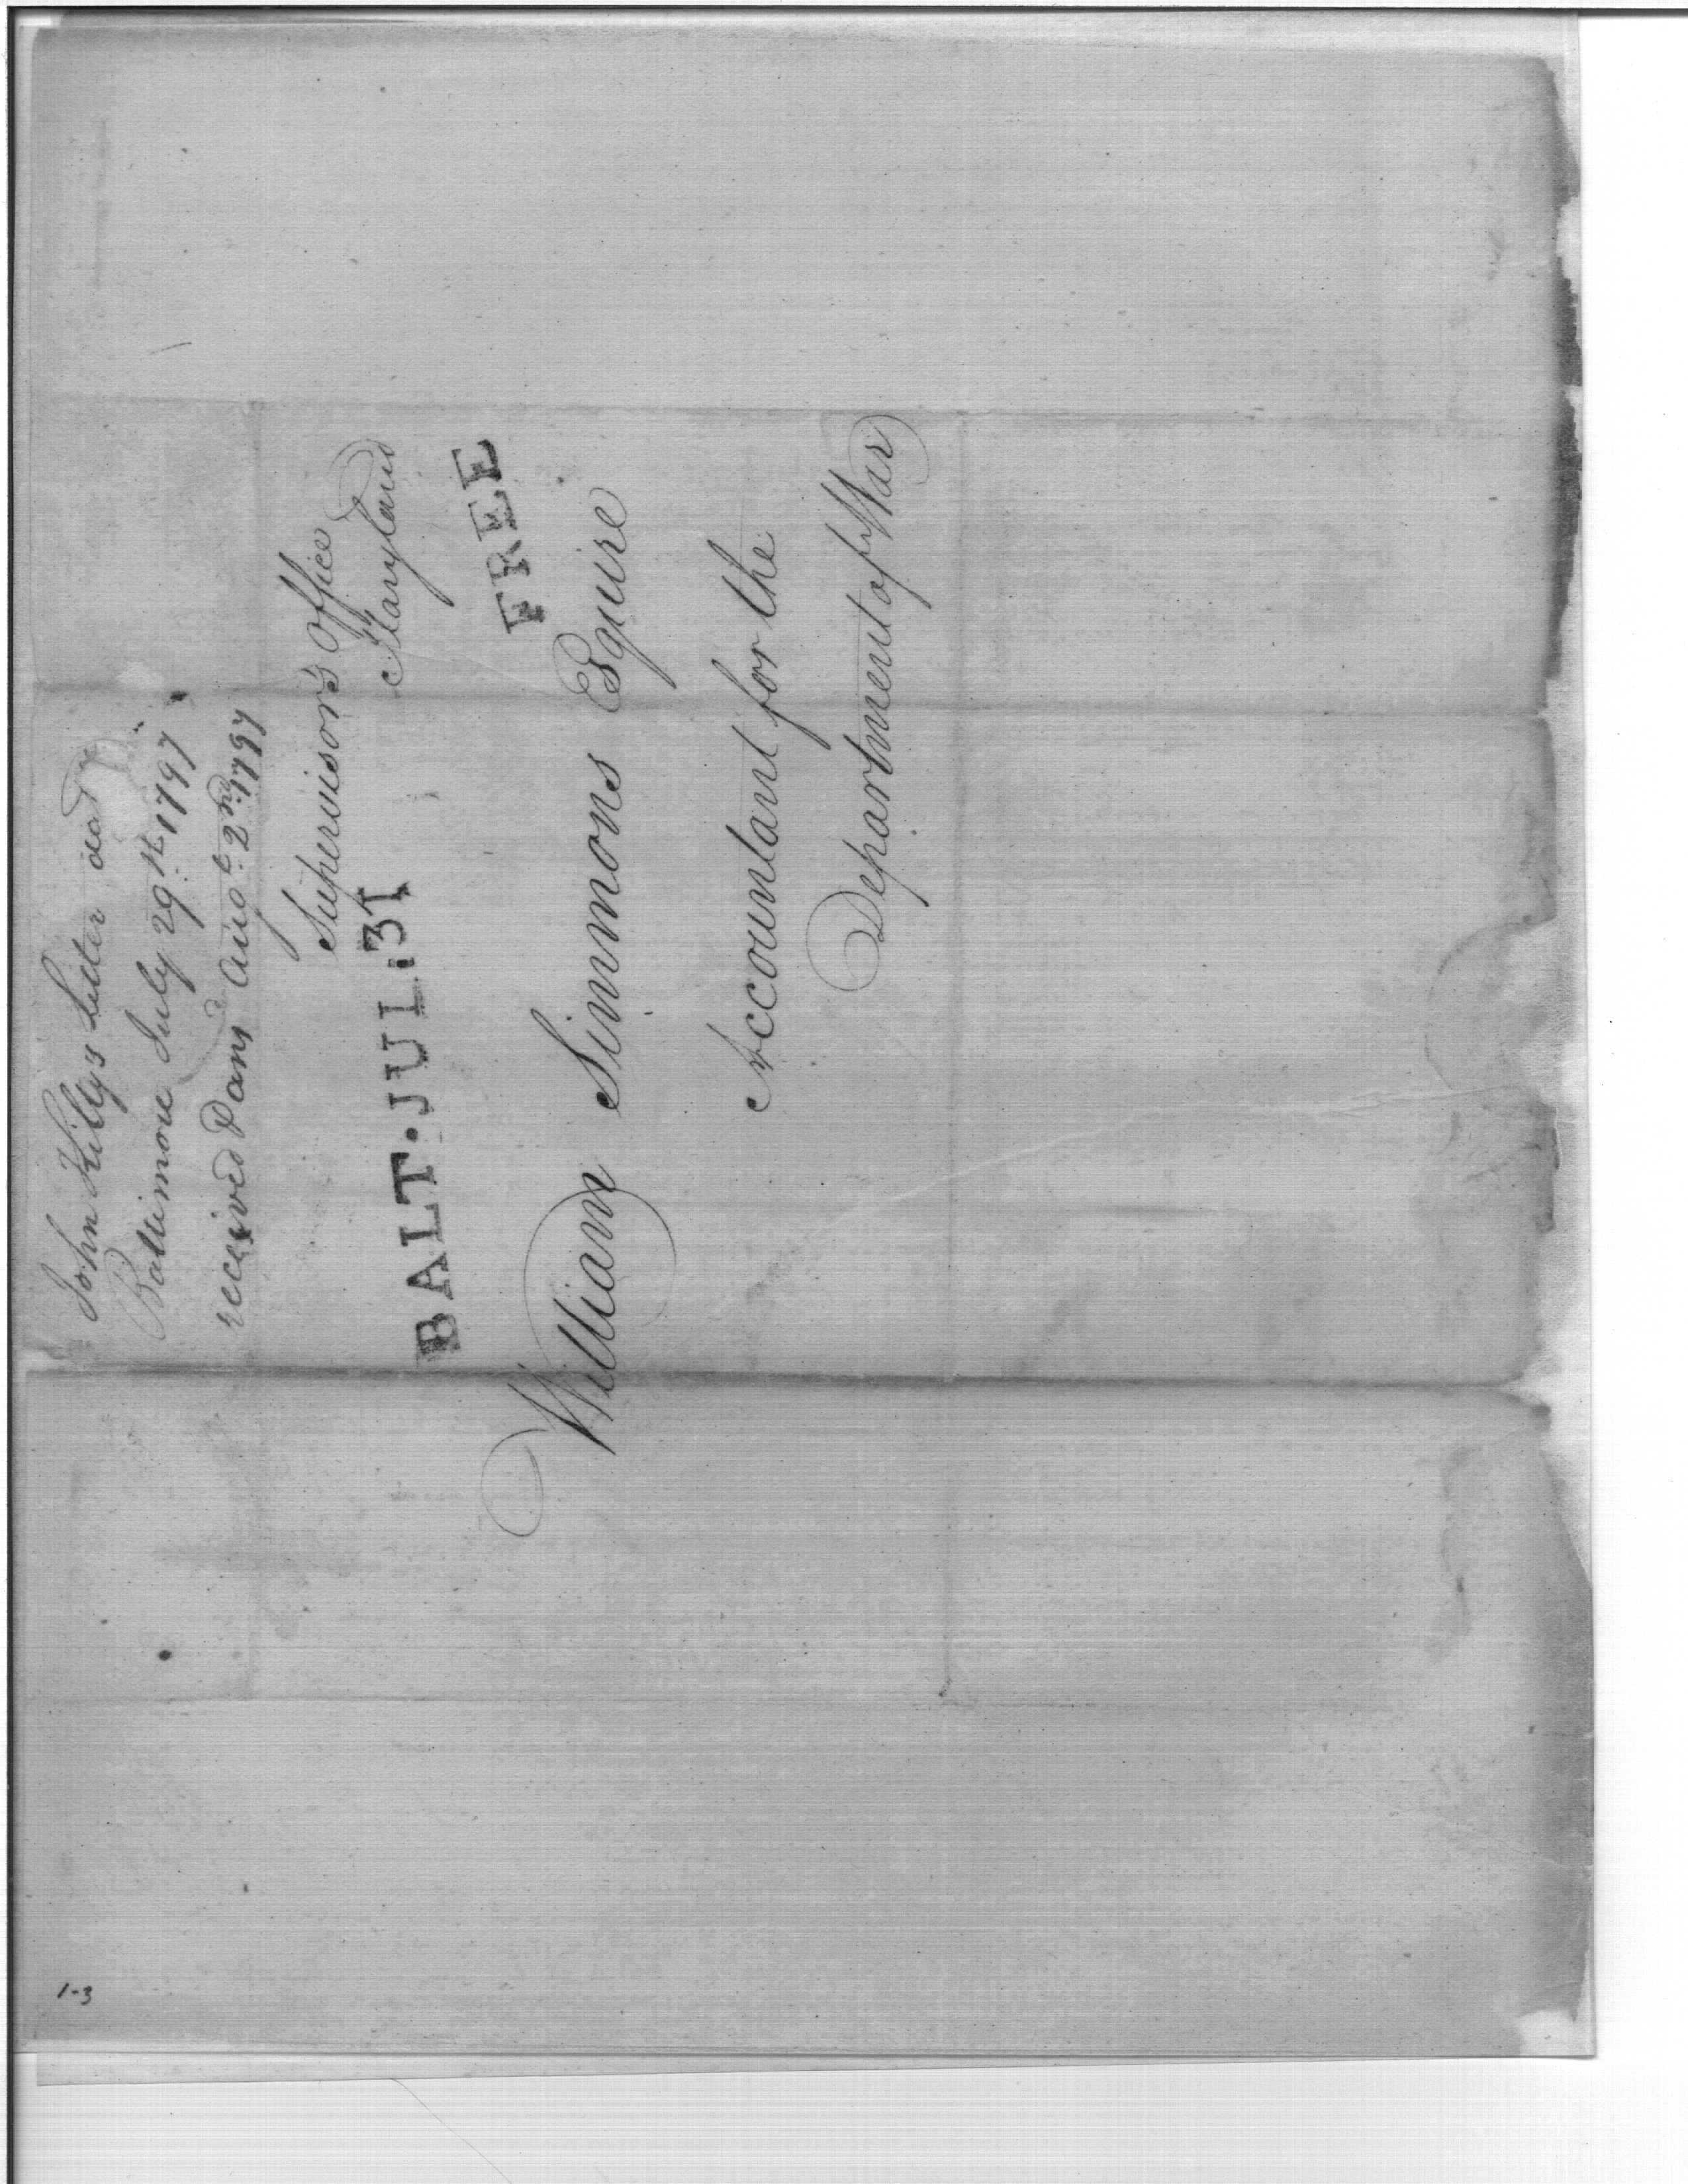 John Kiltys Letter dat^d
Baltimore July 29.th 1797
received Aug.t 2.nd 1797
Supervisor's Office
Maryland
BALT. JUL: 31
FREE
William Simmons Esquire
Accountant for the
Department of War
1-3